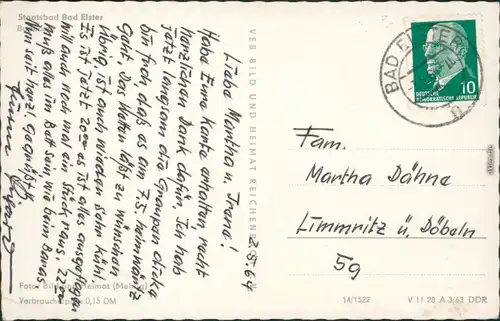 Staatsbad Bad Elster
Liebe Martha u. Irene!
2.5.64
Habe Eure Karte erhalten, recht
herzlichen Dank dafür. Ich hab
jetzt langsam die Graupen dicke
bin froh, daß es am 7.5. heimwärts
geht. Das Wetter läßt zu wünschen
übrig, ist auch wieder sehr kühl.
Es ist jetzt 20 es ist alles ausgeflogen
will auch noch mal ein Stück raus. 22
muß alles im Bett sein wie beim
Nun seit herzl. Gegrüßt
VEB BILD UND HEIMAT REICHENB
BAD ELSTER
10
DEUTSCHE
DEMOKRATISCHE REPUBLIK
Fam.
Martha Dähne
Limmritz ü. Döbeln
59
Foto: Bild und Heimat
Verbraucherpreis 0,15 DM
14/1522
V 11 28 A 3/63 DDR